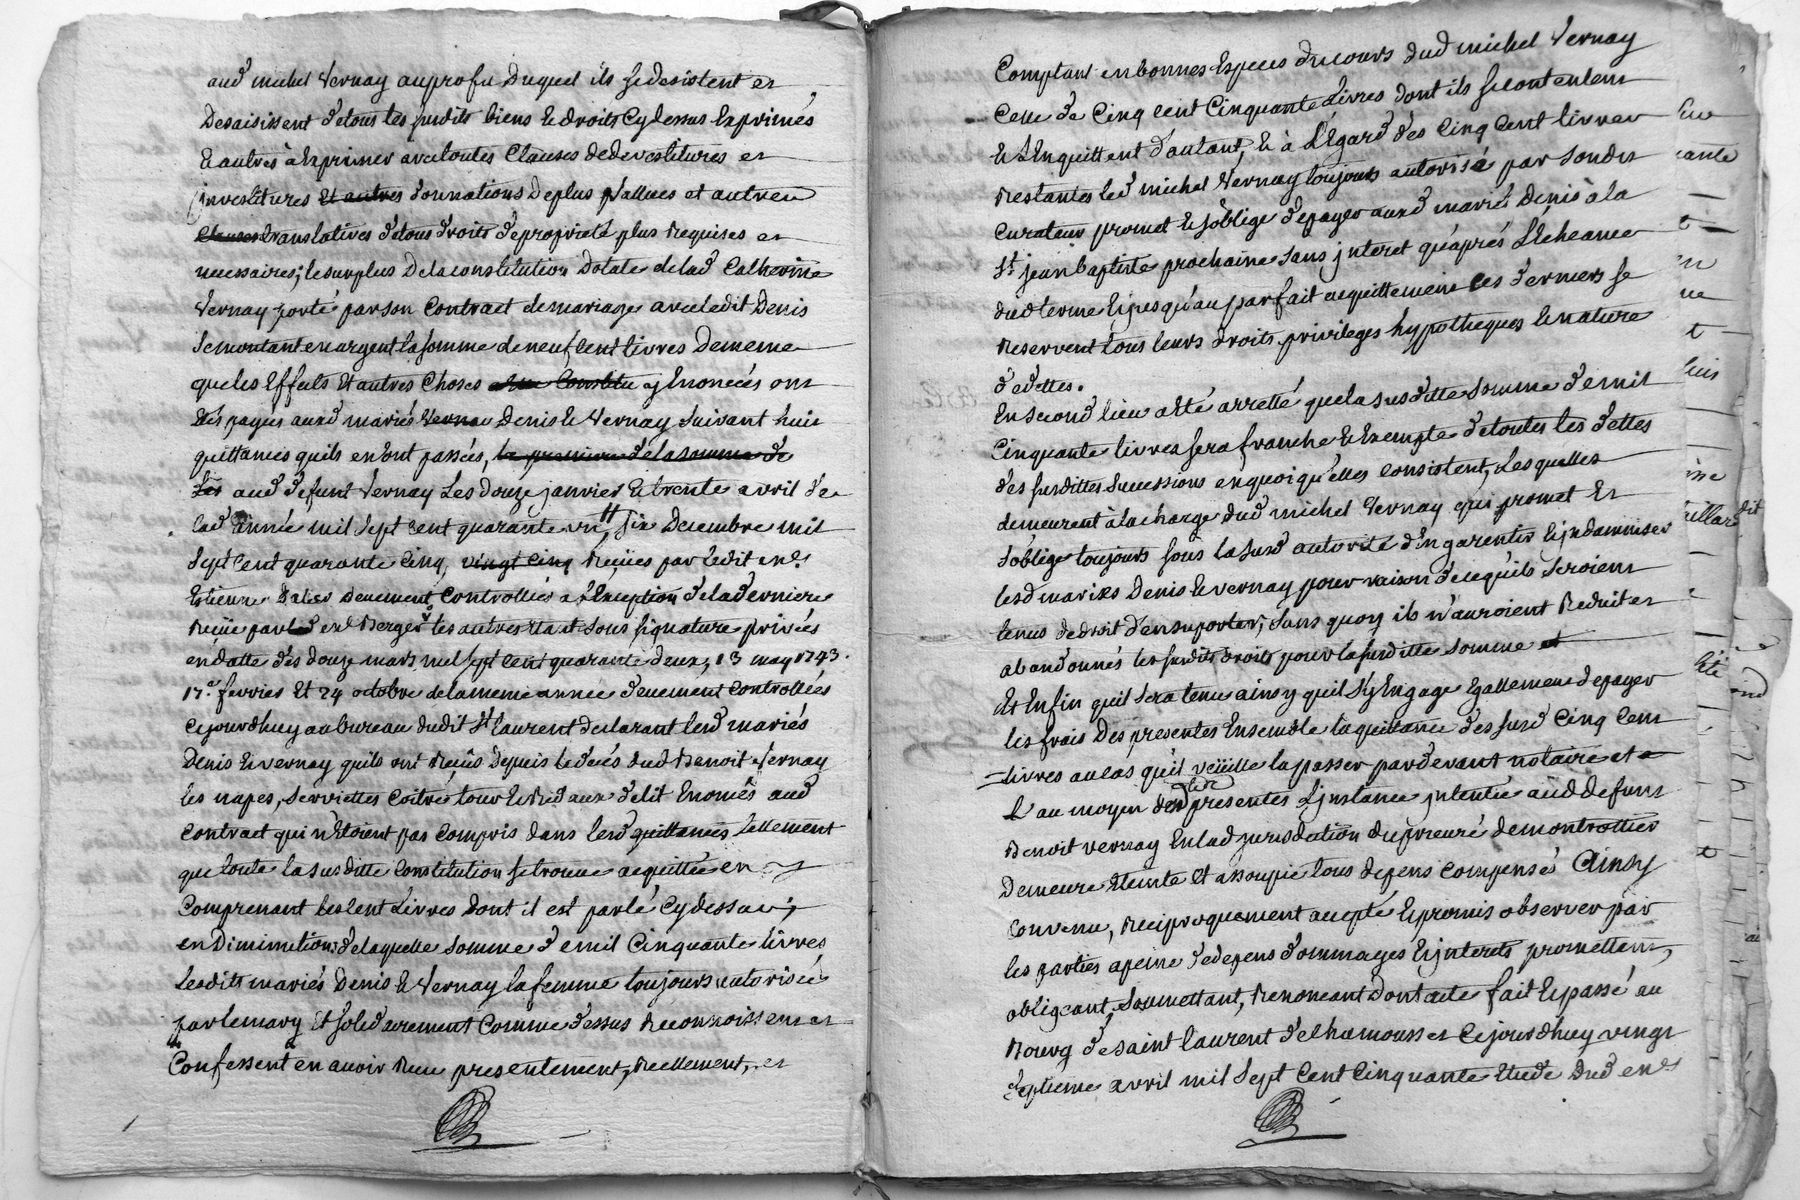 aud michel Vernay auprofit Duquel ils se desistent et
Desaisissent de tous les susdits biens et droits Cydessus Exprimés
Et autres à Exprimer avec toutes Clauses de devestitures et
investitures Et autres donnations de plus vallues et autres
Clauses translatives de tous droits de proprieté, plus Requises et
necessaires; le surplus De la constitution Dotale de lad Catherine
Vernay porté par son Contract de mariage avec ledit Denis
Se montant en argent la somme de neuf Cent livres De meme
que les Effects Et autres Choses Constitu y Enoncées ont
Etés payés aux d mariés Vernay Denis Et Vernay Suivant huit
quittances quils en ont passés, la premiere de la somme de
aud defunt Vernay Les douze janvier Et trente avril de
lad année mil Sept Cent quarante un, six Decembre mil
Sept Cent quarante Cinq, vingt Cinq Reçües par ledit me
Estienne Dalier Deuement Controllés a l'Exception de la derniere
Reçüe par led me Berger les autres Etant Sous signature privées
en datte des douze mars mil sept Cent quarante deux, 13 may 1743.
17e fevrier Et 24 octobre de la meme année deuement Controllées
Cejourdhuy au bureau dudit St laurent declarant lesd mariés
Denis Et Vernay quils ont Reçûs Depuis le decés dud Benoit Vernay
les napes, Serviettes Coitre tour Et Rideaux de lit Enoncés aud
Contract qui n'Etoient pas Compris dans lesd quittances tellement
que toute la susditte Constitution se trouve acquittée en y
Comprenant les Cent Livres Dont il est parlé Cydessus;
en Diminution de laquelle Somme de mil Cinquante livres
Lesdits mariés Denis Et Vernay la femme toujours autorisée
par le mary Et solidairement Comme dessus Reconnoissent et
Confessent en avoir Reçu presentement, Reellement, et
Comptant en bonnes Especes du cours dud michel Vernay
Celle de Cinq Cent Cinquante Livres dont ils se contentent
Et L'Enquittent d'autant, Et à L'Egard des Cinq Cent livres
Restantes led michel Vernay toujours autorisé par Sondit
Curateur promet Et s'oblige de payer aux d mariés Denis à la
St jean baptiste prochaine Sans jnteret qu'aprés L'Echeance
dud terme Et jusqu'au parfait acquittement Ces derniers se
Reservent tous leurs droits privileges hypotheques Et nature
de dettes.
En second lieu a Eté arretté que la susditte Somme de mil
Cinquante livres sera franche Et Exempte de toutes les dettes
des susdittes Successions en quoi qu'elles Consistent, Lesquelles
demeurent à la charge dud michel Vernay qui promet Et
s'oblige toujours sous la susd autorité d'En garentir Et jndamniser
lesd mariés Denis Et Vernay pour raison de ce qu'ils Seroient
tenus de droit d'en suporter, Sans quoy ils n'auroient Reduit et
abandonnés les susdits droits pour la susditte somme et
Et Enfin quil Sera tenu ainsy quil s'y Engage Egallement de payer
les frais Des presentes Ensemble la quittance des susd Cinq Cent
Livres au cas qu'il veüille la passer pardevant notaire et
L'au moyen des presentes L'jnstance jntentée aüd Defunt
Benoit Vernay En lad jurisdiction du prieuré de montrottier
Demeure Eteinte Et assoupie tous depens Compensés Ainsy
Convenu, Reciproquement accepté Et promis observer par
les parties a peine de depens dommages Et jnterets promettent,
obligeant, Soumettant, Renonceant dont acte fait Et passé au
Bourg de saint laurent de chamousset Cejourdhuy vingt
Septieme avril mil Sept Cent Cinquante Etude dud me